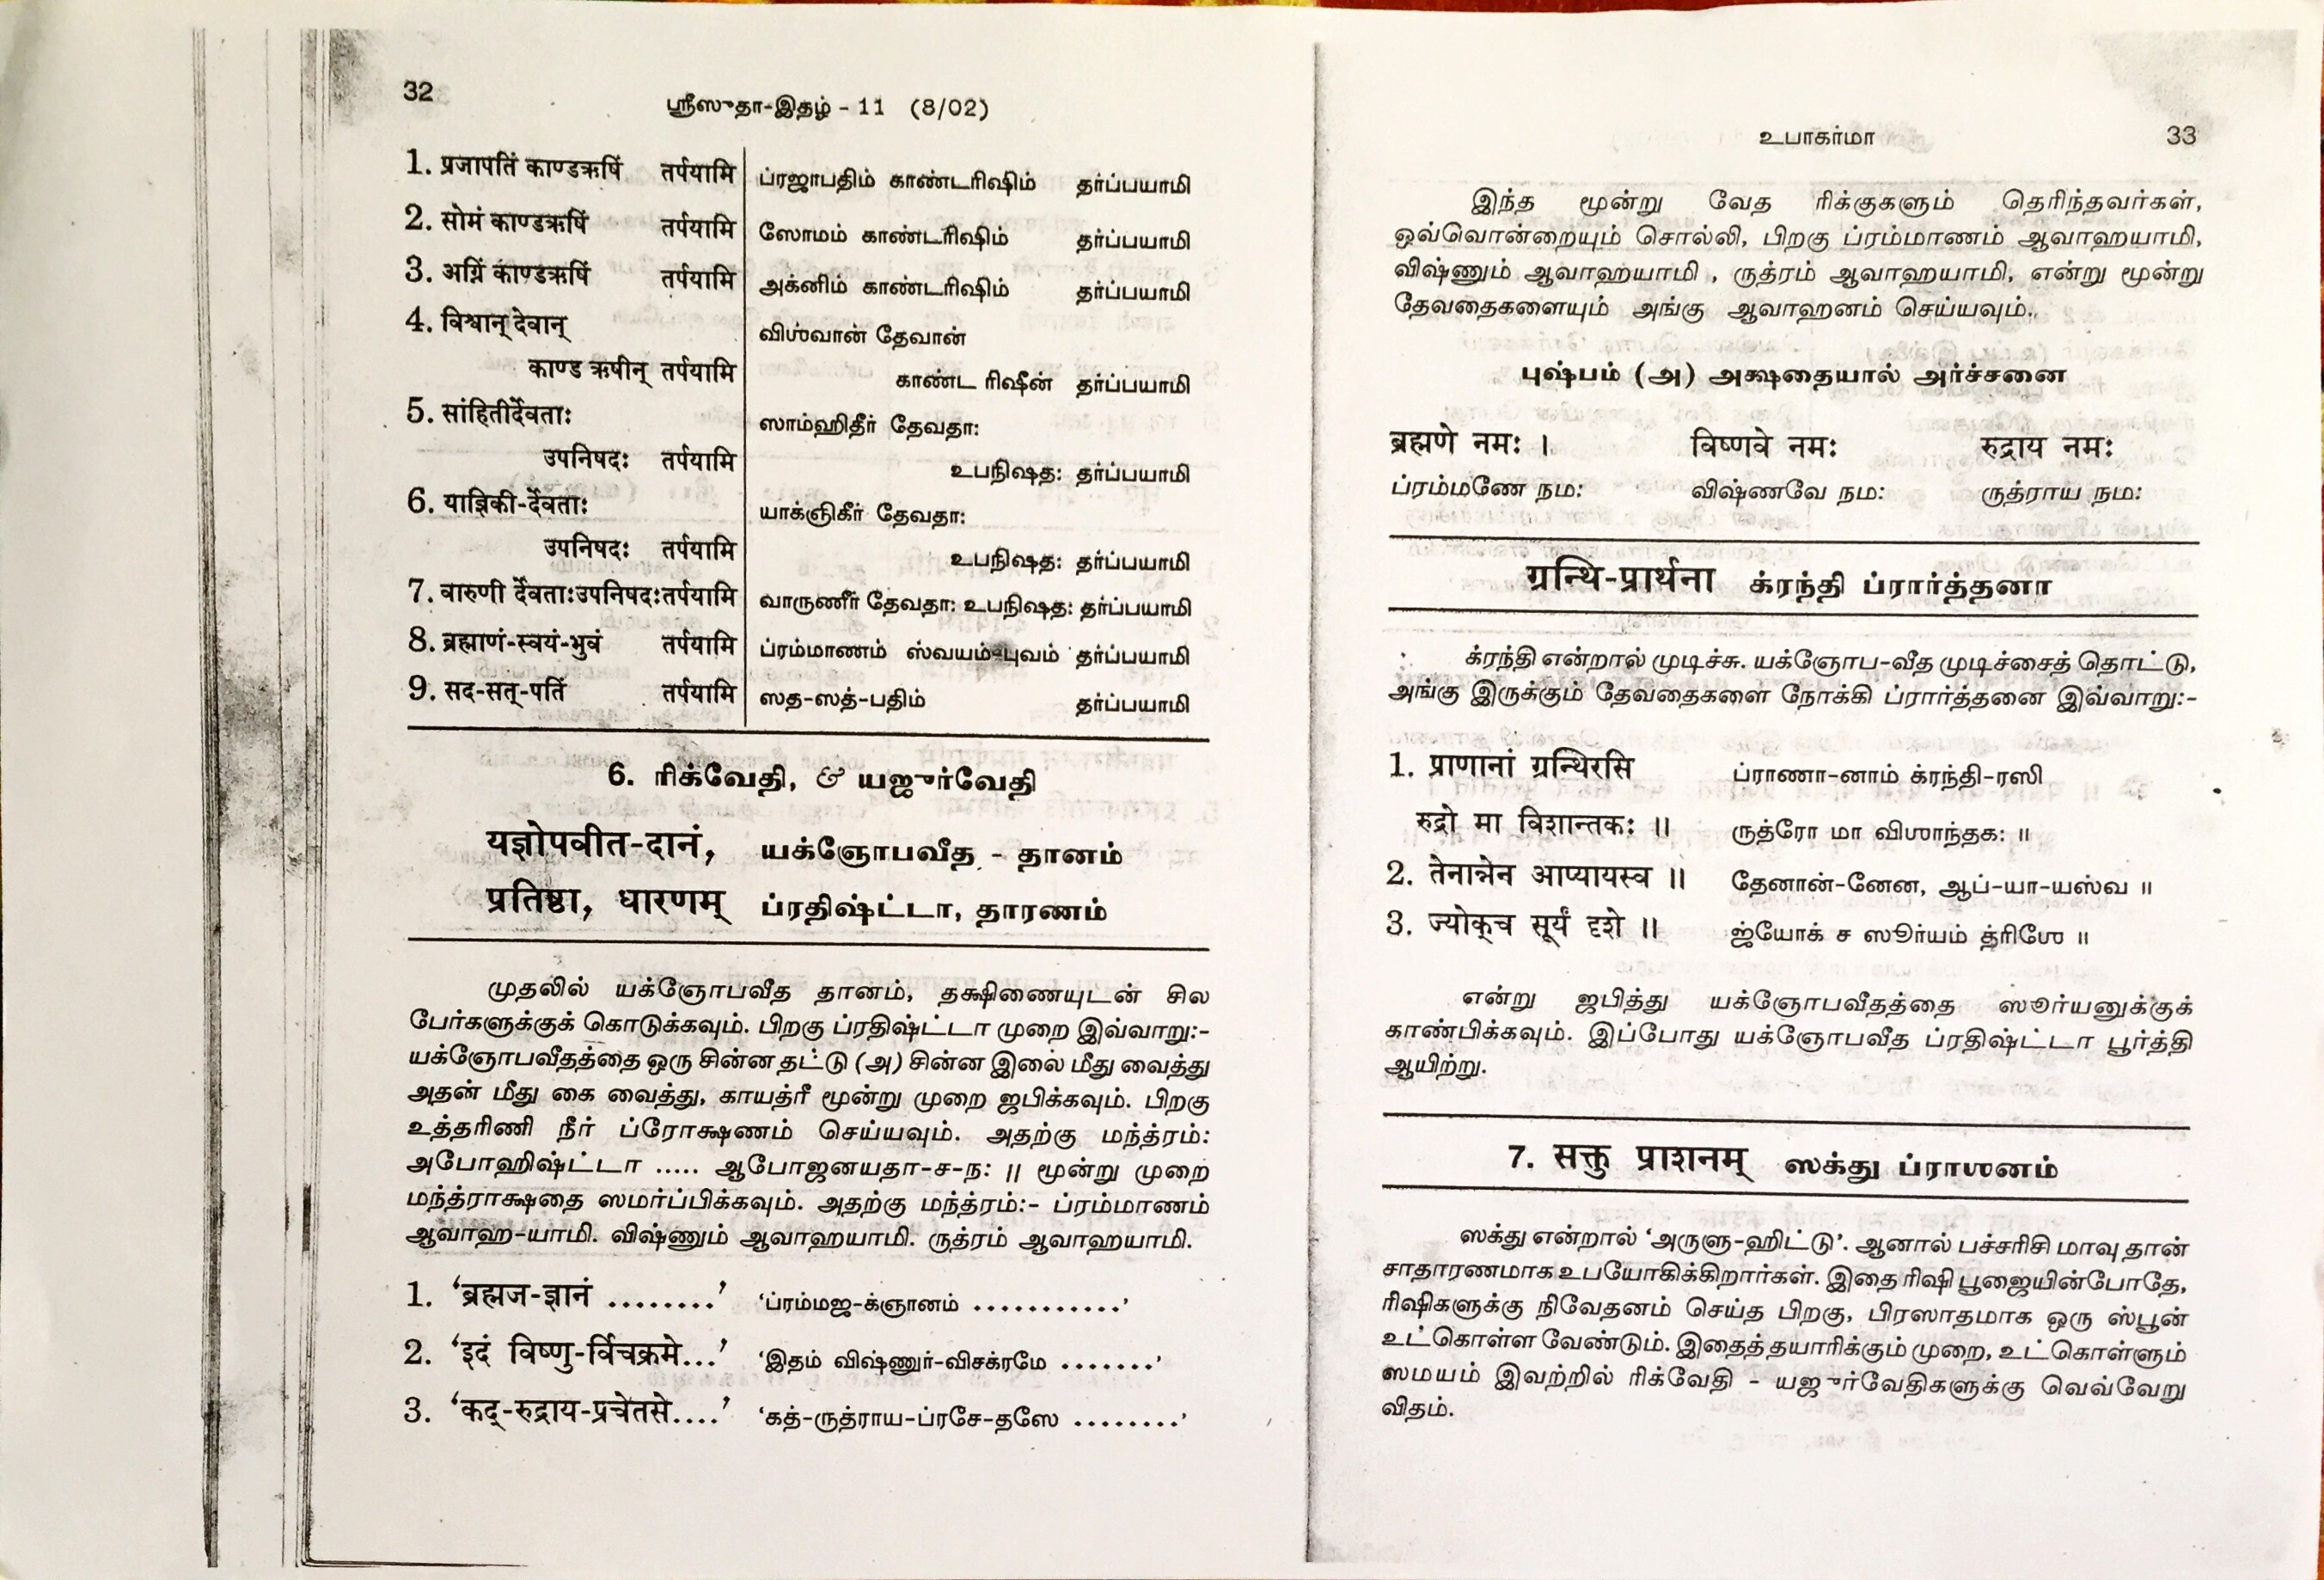 32
ஸ்ரீஸுதா-இதழ் - 11 (8/02)
1. प्रजापतिं काण्डऋषिं तर्पयामि ப்ரஜாபதிம் காண்டரிஷிம் தர்ப்பயாமி
2. सोमं काण्डऋषिं तर्पयामि ஸோமம் காண்டரிஷிம் தர்ப்பயாமி
3. अग्निं काण्डऋषिं तर्पयामि அக்னிம் காண்டரிஷிம் தர்ப்பயாமி
4. विश्वान् देवान् விஶ்வான் தேவான்
काण्ड ऋषीन् तर्पयामि காண்ட ரிஷீன் தர்ப்பயாமி
5. सांहितीर्देवताः ஸாம்ஹிதீர் தேவதா:
उपनिषदः तर्पयामि உபநிஷத: தர்ப்பயாமி
6. याज्ञिकी-र्देवताः யாக்ஞிகீர் தேவதா:
उपनिषदः तर्पयामि உபநிஷத: தர்ப்பயாமி
7. वारुणी र्देवताःउपनिषदःतर्पयामि வாருணீர் தேவதா: உபநிஷத: தர்ப்பயாமி
8. ब्रह्माणं-स्वयं-भुवं तर्पयामि ப்ரம்மாணம் ஸ்வயம்-புவம் தர்ப்பயாமி
9. सद-सत्-पतिं तर्पयामि ஸத-ஸத்-பதிம் தர்ப்பயாமி
6. ரிக்வேதி, & யஜுர்வேதி
यज्ञोपवीत-दानं, யக்ஞோபவீத - தானம்
प्रतिष्ठा, धारणम् ப்ரதிஷ்ட்டா, தாரணம்
முதலில் யக்ஞோபவீத தானம், தக்ஷிணையுடன் சில
பேர்களுக்குக் கொடுக்கவும். பிறகு ப்ரதிஷ்ட்டா முறை இவ்வாறு:-
யக்ஞோபவீதத்தை ஒரு சின்ன தட்டு (அ) சின்ன இலை மீது வைத்து
அதன் மீது கை வைத்து, காயத்ரீ மூன்று முறை ஜபிக்கவும். பிறகு
உத்தரிணி நீர் ப்ரோக்ஷணம் செய்யவும். அதற்கு மந்த்ரம்:
அபோஹிஷ்ட்டா ..... ஆபோஜனயதா-ச-ந: ॥ மூன்று முறை
மந்த்ராக்ஷதை ஸமர்ப்பிக்கவும். அதற்கு மந்த்ரம்:- ப்ரம்மாணம்
ஆவாஹ-யாமி. விஷ்ணும் ஆவாஹயாமி. ருத்ரம் ஆவாஹயாமி.
1. ‘ब्रह्मज-ज्ञानं ........’ ‘ப்ரம்மஜ-க்ஞானம் ...........’
2. ‘इदं विष्णु-र्विचक्रमे...’ ‘இதம் விஷ்ணுர்-விசக்ரமே .......’
3. ‘कद्-रुद्राय-प्रचेतसे....’ ‘கத்-ருத்ராய-ப்ரசே-தஸே ........’
உபாகர்மா 33
இந்த மூன்று வேத ரிக்குகளும் தெரிந்தவர்கள்,
ஒவ்வொன்றையும் சொல்லி, பிறகு ப்ரம்மாணம் ஆவாஹயாமி,
விஷ்ணும் ஆவாஹயாமி , ருத்ரம் ஆவாஹயாமி, என்று மூன்று
தேவதைகளையும் அங்கு ஆவாஹனம் செய்யவும்.
புஷ்பம் (அ) அக்ஷதையால் அர்ச்சனை
ब्रह्मणे नमः । विष्णवे नमः रुद्राय नमः
ப்ரம்மணே நம: விஷ்ணவே நம: ருத்ராய நம:
ग्रन्थि-प्रार्थना க்ரந்தி ப்ரார்த்தனா
க்ரந்தி என்றால் முடிச்சு. யக்ஞோப-வீத முடிச்சைத் தொட்டு,
அங்கு இருக்கும் தேவதைகளை நோக்கி ப்ரார்த்தனை இவ்வாறு:-
1. प्राणानां ग्रन्थिरसि ப்ராணா-னாம் க்ரந்தி-ரஸி
रुद्रो मा विशान्तकः ॥ ருத்ரோ மா விஶாந்தக: ॥
2. तेनान्नेन आप्यायस्व ॥ தேனான்-னேன, ஆப்-யா-யஸ்வ ॥
3. ज्योक्च सूर्यं दृशे ॥ ஜ்யோக் ச ஸூர்யம் த்ரிஶே ॥
என்று ஜபித்து யக்ஞோபவீதத்தை ஸூர்யனுக்குக்
காண்பிக்கவும். இப்போது யக்ஞோபவீத ப்ரதிஷ்ட்டா பூர்த்தி
ஆயிற்று.
7. सक्तु प्राशनम् ஸக்து ப்ராஶனம்
ஸக்து என்றால் ‘அருளு-ஹிட்டு’. ஆனால் பச்சரிசி மாவு தான்
சாதாரணமாக உபயோகிக்கிறார்கள். இதை ரிஷி பூஜையின்போதே,
ரிஷிகளுக்கு நிவேதனம் செய்த பிறகு, பிரஸாதமாக ஒரு ஸ்பூன்
உட்கொள்ள வேண்டும். இதைத் தயாரிக்கும் முறை, உட்கொள்ளும்
ஸமயம் இவற்றில் ரிக்வேதி - யஜுர்வேதிகளுக்கு வெவ்வேறு
விதம்.